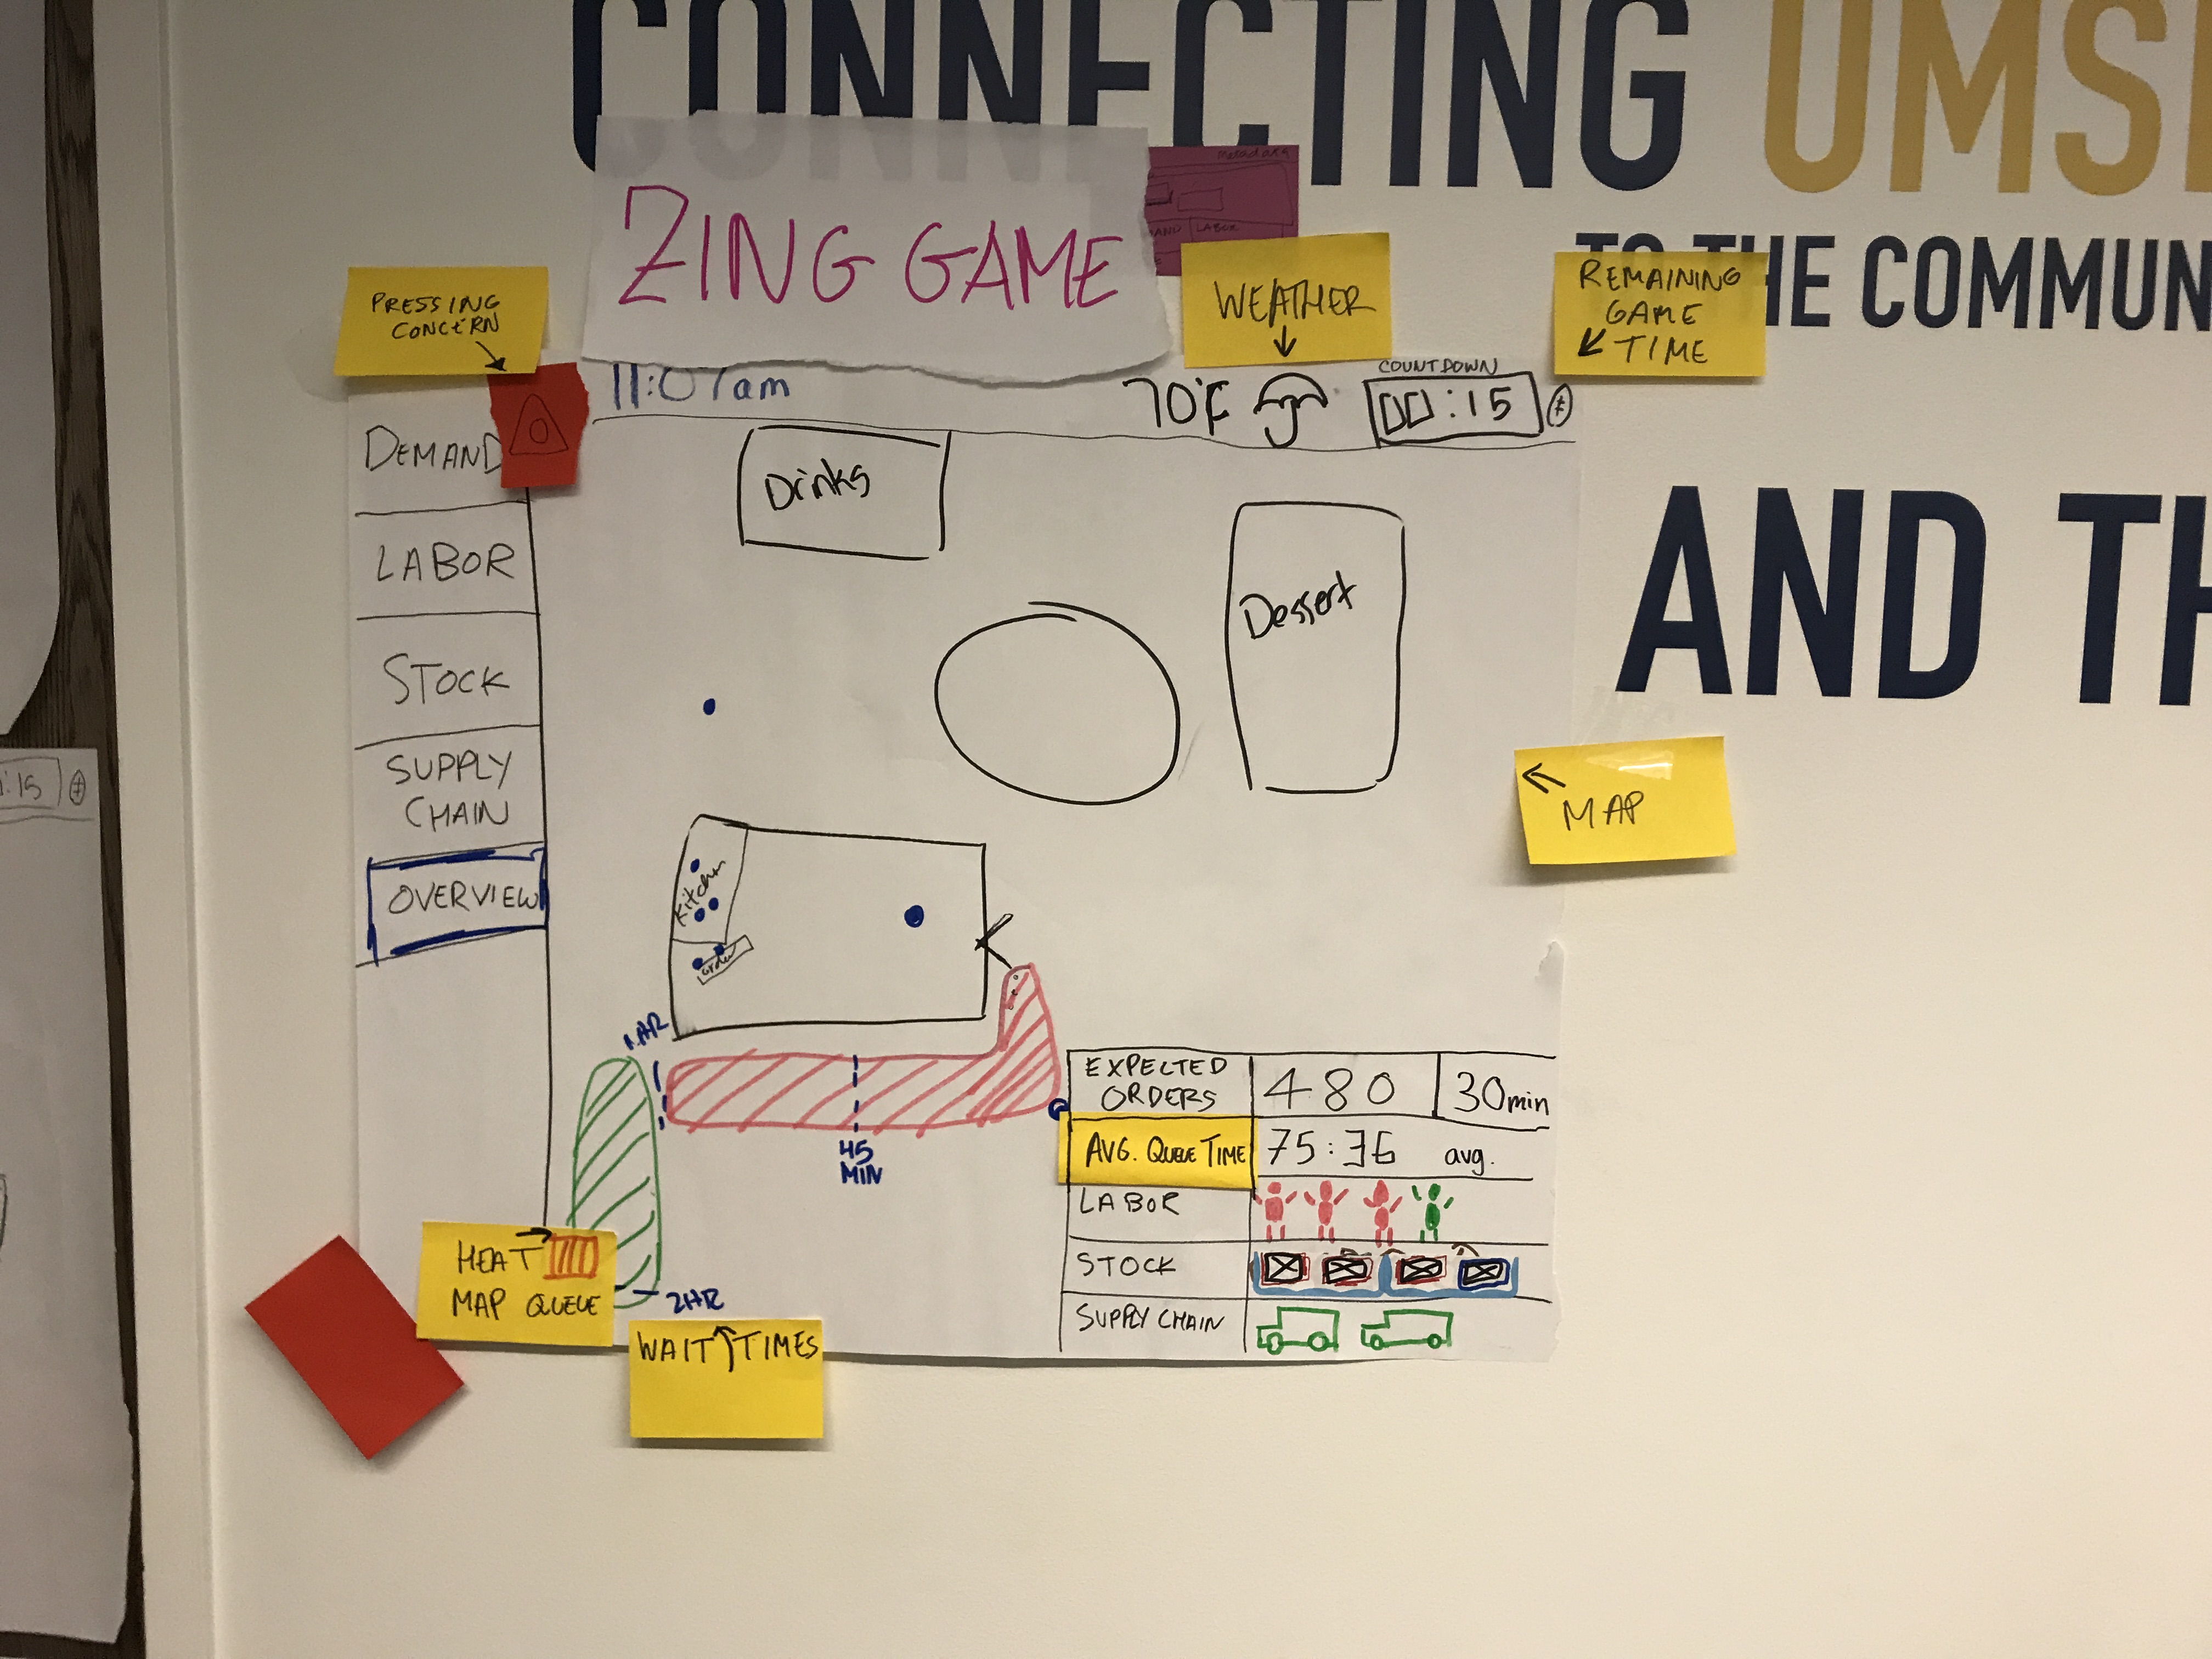 CONNECTING UMSI
TO THE COMMUN
AND TH
ZING GAME
metadata
LABOR
PRESSING
CONCERN
WEATHER
REMAINING
GAME
TIME
11:07am
70°F
COUNTDOWN
00:15
DEMAND
LABOR
STOCK
SUPPLY
CHAIN
OVERVIEW
Drinks
Dessert
MAP
Kitchen
order
45
MIN
2HR
HEAT
MAP QUEUE
WAIT TIMES
EXPECTED
ORDERS
480
30min
AVG. QUEUE TIME
75:36 avg.
LABOR
STOCK
SUPPLY CHAIN
:15